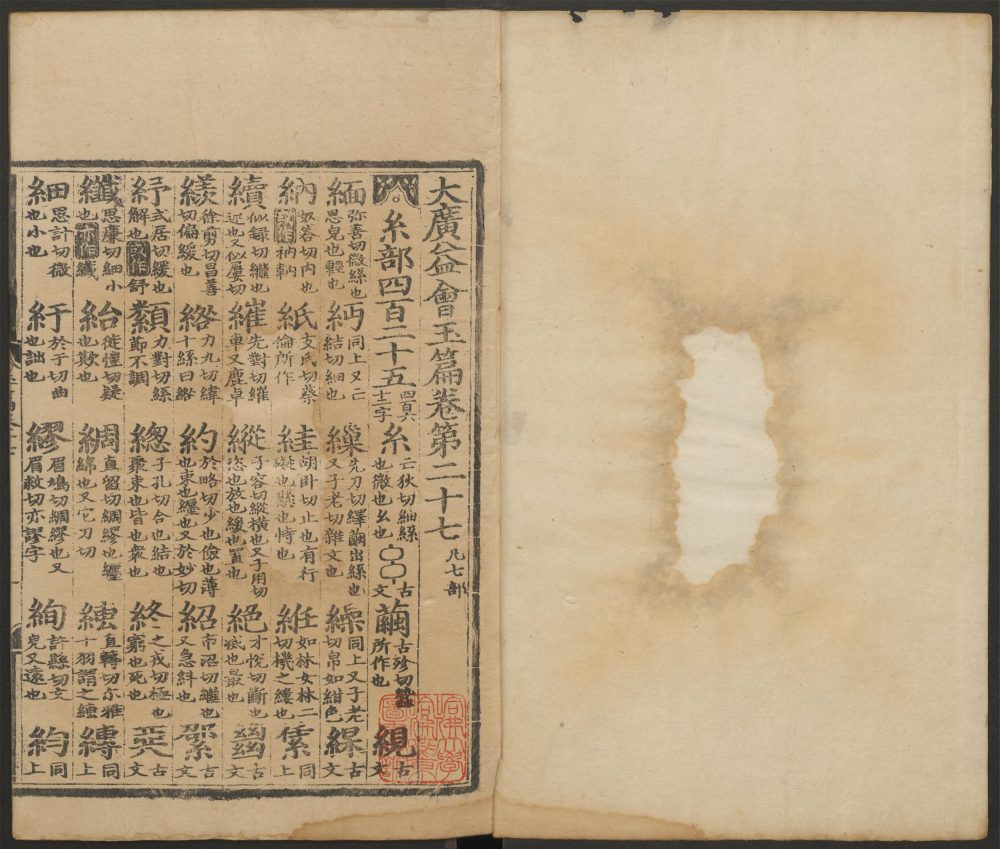 大廣益會玉篇卷第二十七 凡七部
糸部四百二十五 四百六十二字 糸 亡狄切細絲也微也幺也 古文 繭 古殄切蠶所作也 絸 古文
緬 弥善切微絲也思皃也輕也 同上又亡結切細也 繅 先刀切繹繭出絲也又子老切雜文也 繰 同上又子老切帛如紺色 古文
納 奴荅切內也 紙 支氏切蔡倫所作 絓 胡卦切止也有行礙也懸也恃也 紝 如林女林二切機之縷也 同上
續 似録切繼也又似屢切 繀 先對切繀車又鹿卓 縱 子容切縱橫也又子用切恣也放也緩也置也 絕 才悅切斷也滅也最也 古文
徐剪切昌善切偏緩也 綹 力九切緯十絲曰綹 約 於略切少也儉也薄也束也纏也又於妙切 紹 市沼切繼也又急糾也 古文
紓 式居切緩也解也或作舒 纇 力對切絲節不調 緫 子孔切合也結也聚束也皆也衆也 終 之戎切極也窮也死也 古文
纖 思廉切細小也或作孅 紿 徒愷切疑也欺也 綢 直留切綢繆也纏綿也又它刀切 直轉切尔雅十羽謂之 縳 同上
細 思計切微也小也 紆 於于切曲也詘也 繆 眉鳩切綢繆也又眉救切亦謬字 絢 許縣切文皃又遠也 同上